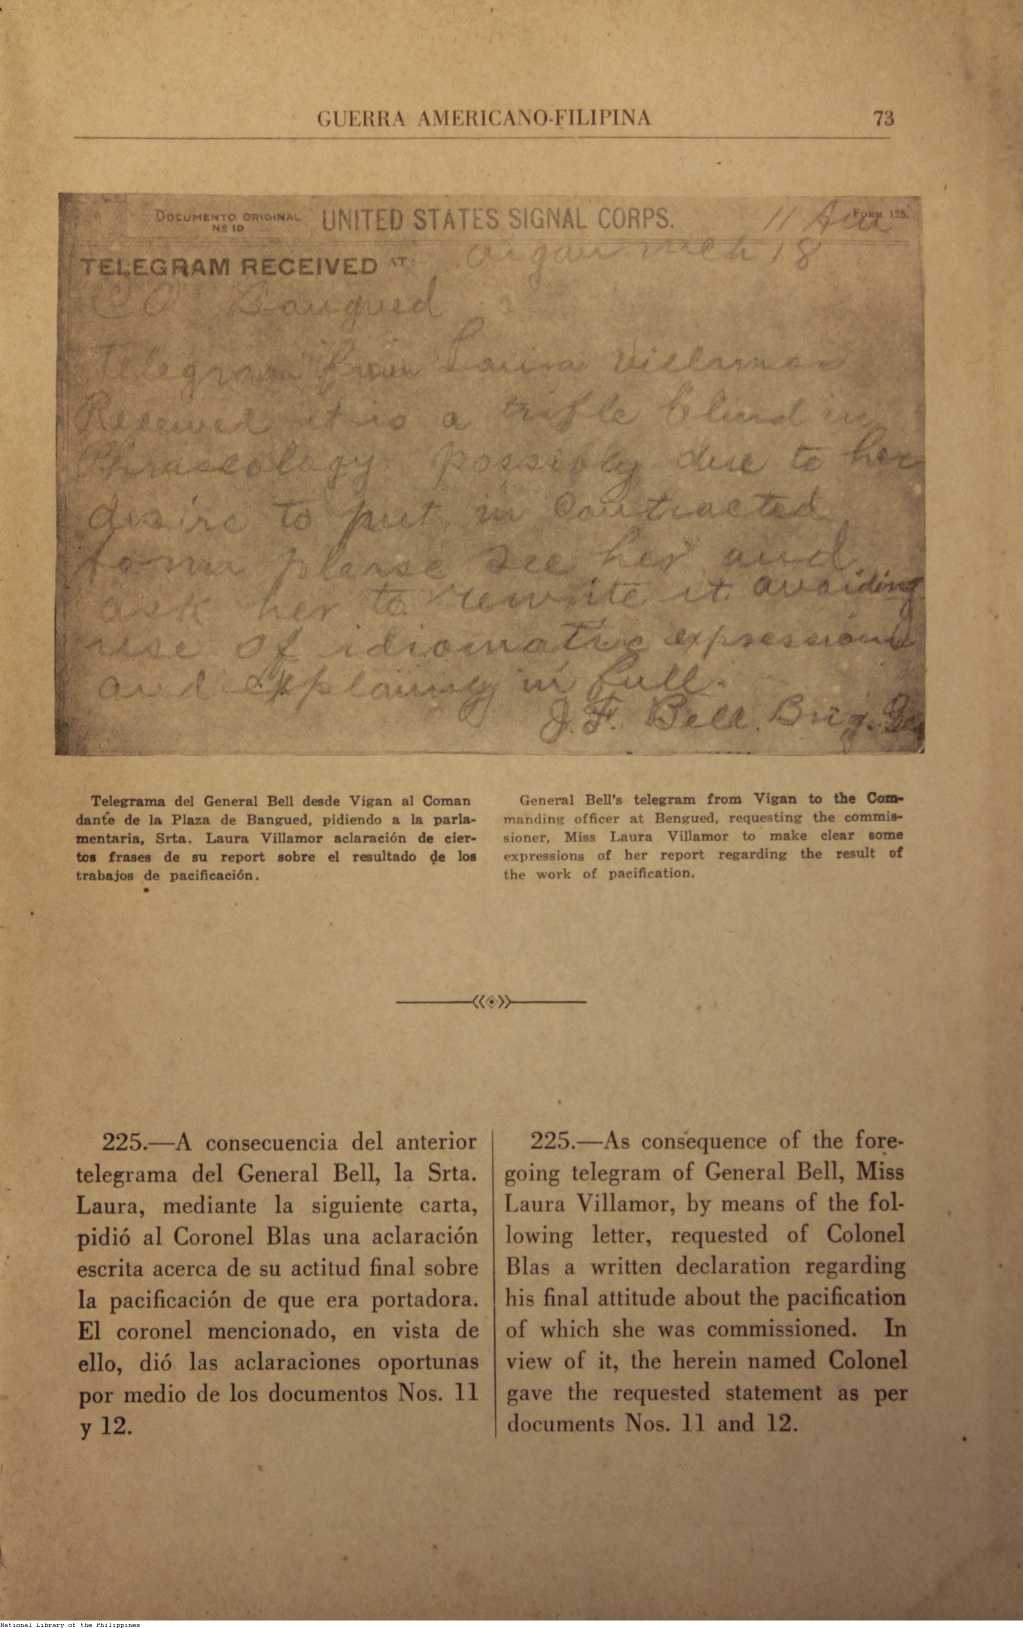 GUERRA AMERICANO-FILIPINA 73
DOCUMENTO ORIGINAL
Nº 10
UNITED STATES SIGNAL CORPS.
FORM 125.
11 Am
TELEGRAM RECEIVED AT
Vigan Mch 18
CO Bangued
Telegram from Laura Villamor
Received it is a trifle blind in
Phraseology possibly due to her
desire to put in Contracted
form please see her and
ask her to rewrite it avoiding
use of idiomatic expressions
and explaining in full.
J. F. Bell. Brig. Gen
Telegrama del General Bell desde Vigan al Coman
dante de la Plaza de Bangued, pidiendo a la parla-
mentaria, Srta. Laura Villamor aclaración de cier-
tos frases de su report sobre el resultado de los
trabajos de pacificación.
General Bell's telegram from Vigan to the Com-
manding officer at Bengued, requesting the commis-
sioner, Miss Laura Villamor to make clear some
expressions of her report regarding the result of
the work of pacification.
225.—A consecuencia del anterior
telegrama del General Bell, la Srta.
Laura, mediante la siguiente carta,
pidió al Coronel Blas una aclaración
escrita acerca de su actitud final sobre
la pacificación de que era portadora.
El coronel mencionado, en vista de
ello, dió las aclaraciones oportunas
por medio de los documentos Nos. 11
y 12.
225.—As consequence of the fore-
going telegram of General Bell, Miss
Laura Villamor, by means of the fol-
lowing letter, requested of Colonel
Blas a written declaration regarding
his final attitude about the pacification
of which she was commissioned. In
view of it, the herein named Colonel
gave the requested statement as per
documents Nos. 11 and 12.
National Library of the Philippines